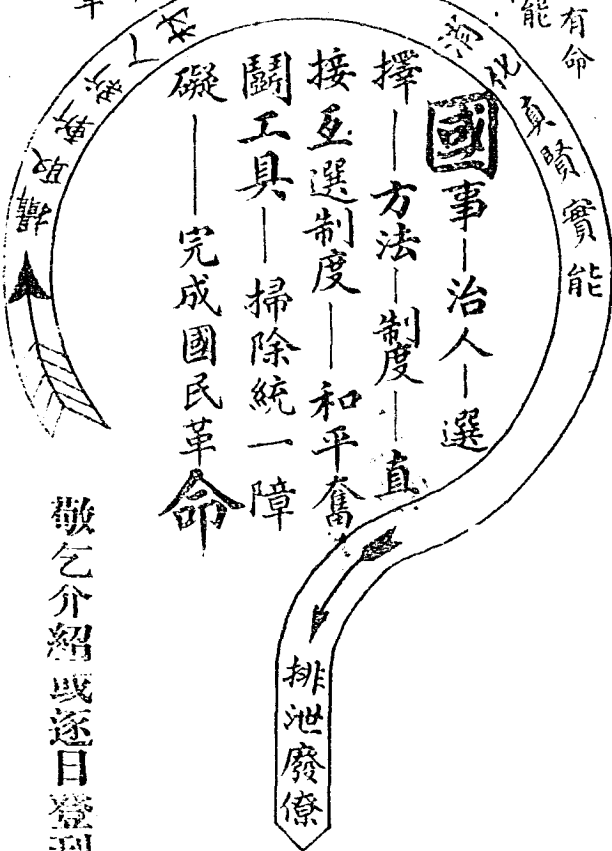 有命
能
消化真賢實能
國事—治人—選
擇—方法—制度—直
接互選制度—和平奮
鬪工具—掃除統一障
礙—完成國民革命
攝取幹
排泄廢僚
敬乞介紹或逐日登刊